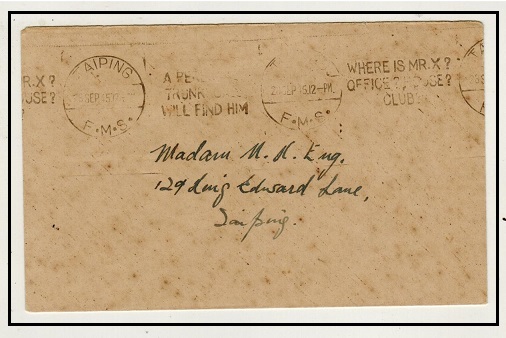 R.X?
USE?
TAIPING
SEP
F.M.S.
A PE
TRUNK
WILL FIND HIM
SEP 12-PM
F.M.S.
WHERE IS MR.X?
OFFICE? HOUSE?
CLUB?
Madam N. K. Eng.
129 King Edward Lane,
Taiping.